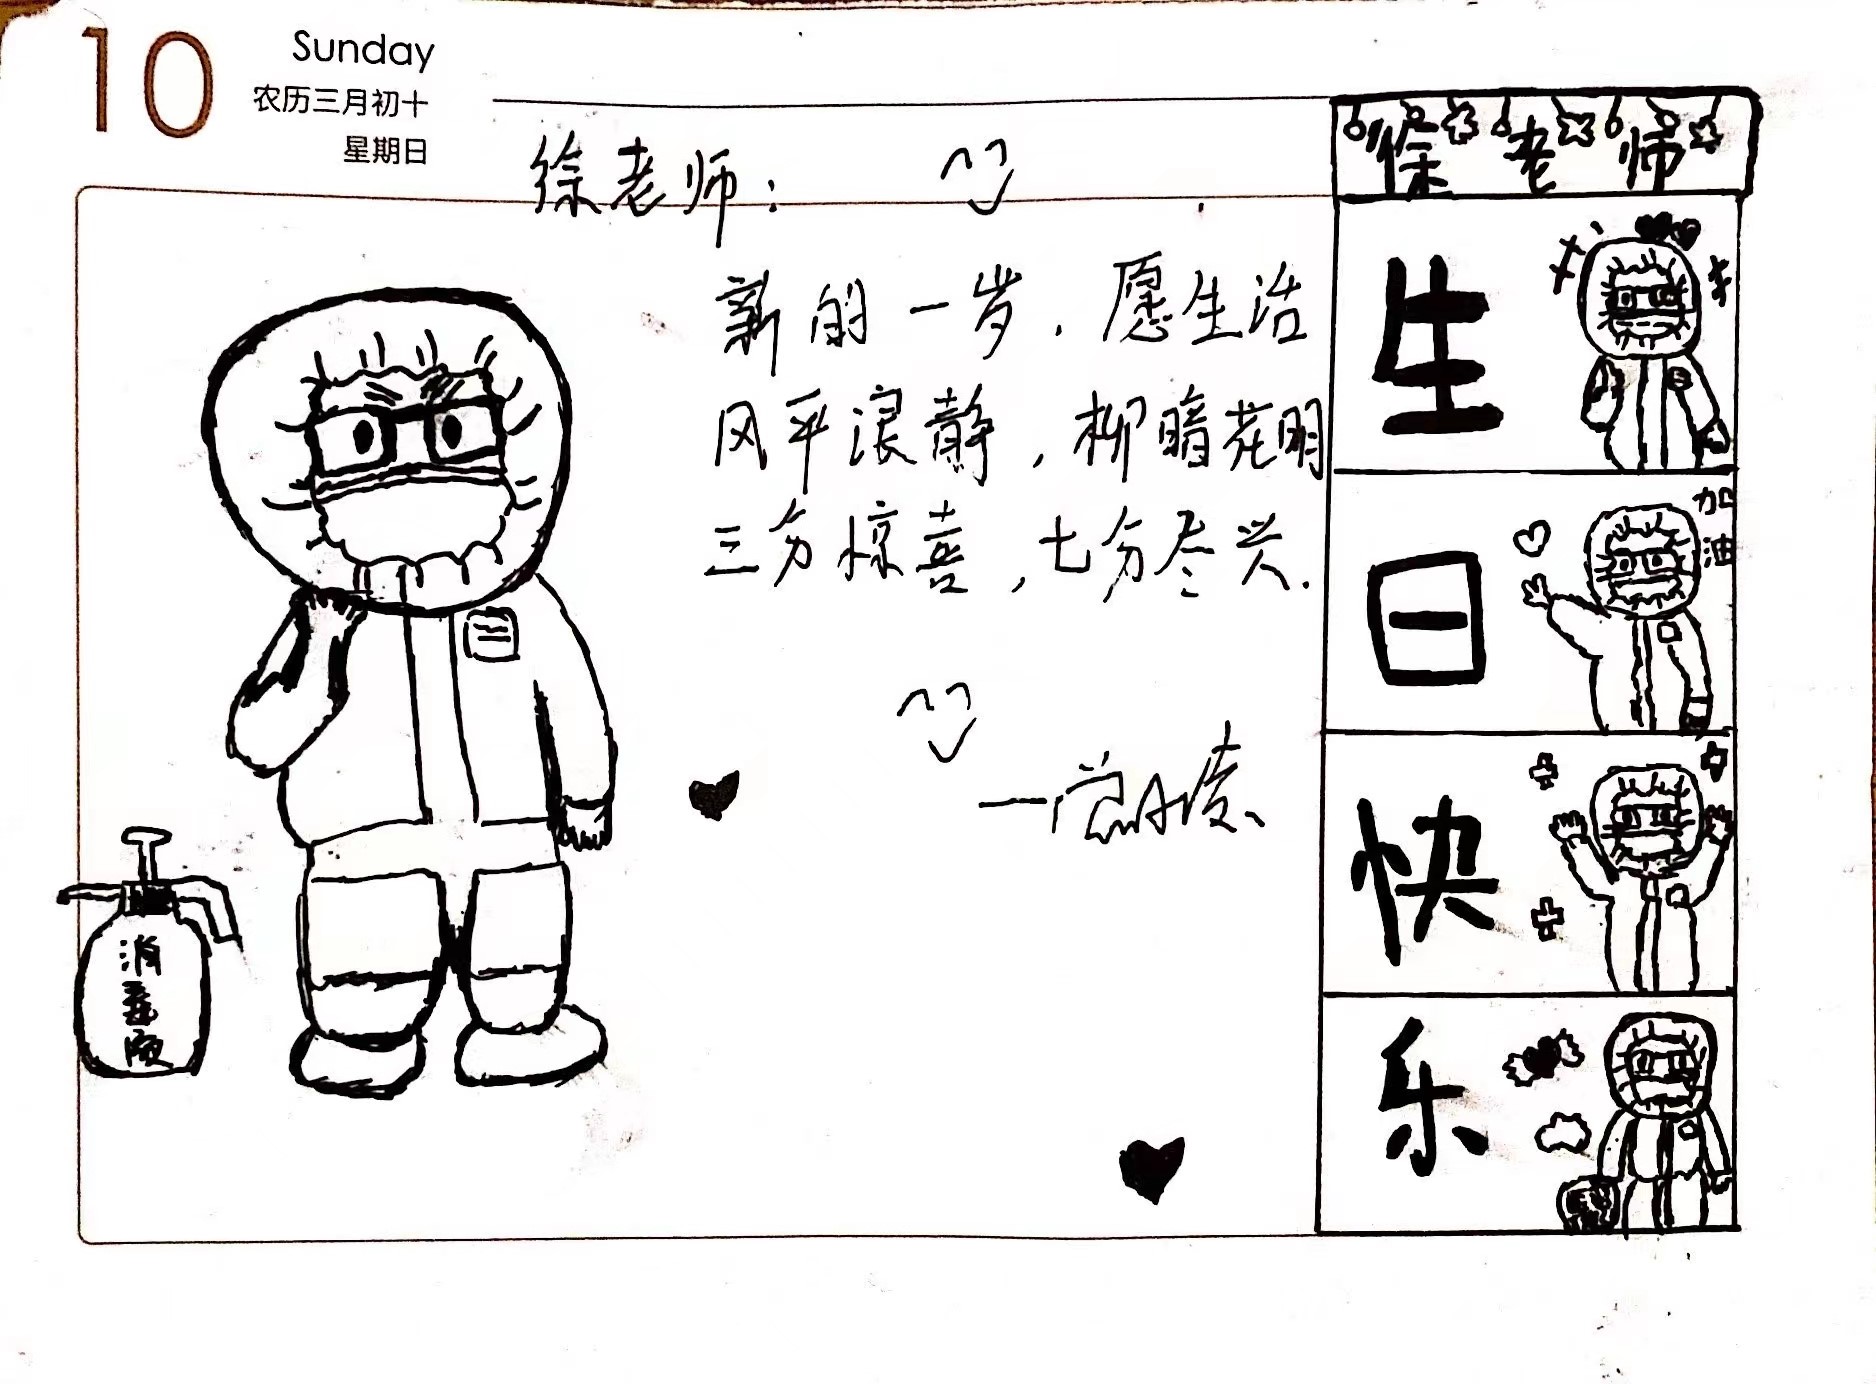 10
Sunday
农历三月初十
星期日
徐老师：
新的一岁，愿生活
风平浪静，柳暗花明
三分惊喜，七分尽兴.
徐老师
生
日
加油
快
乐
消毒液